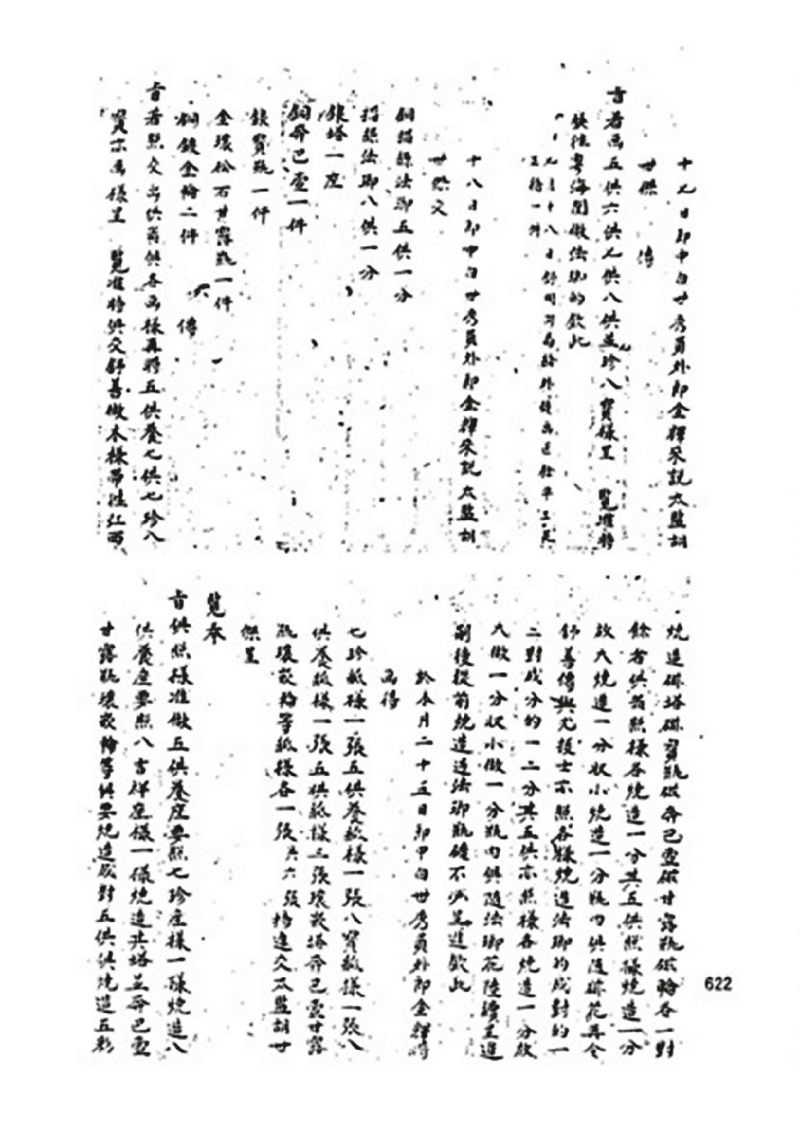 十九日郎中白世秀員外郎金輝來說太監胡
世傑 傳
旨着畫五供六供七供八供並珍八寶樣呈 覽准時
發往粵海關做法瑯的欽此
九月十八日
十八日郎中白世秀員外郎金輝來說太監胡
世傑交
銅掐絲法瑯五供一分
掐絲法瑯八供一分
銀塔一座
銅奔巴壺一件
銀寶瓶一件
金環松石甘露瓶一件
銅鍍金輪二件 傳
旨着照交出供器供各畫樣再將五供養七供七珍八
寶亦畫樣呈 覽准時俱交舒善做木樣帶往江西
燒造磁塔磁寶瓶磁奔巴壺磁甘露瓶磁輪各一對
餘者俱着照樣各燒造一分其五供照樣燒造一分
放大燒造一分收小燒造一分瓶內俱隨磁花再令
舒善傳與尤拔士亦照各樣燒造法瑯的成對的一
二對成分的一二分其五供亦照樣各燒造一分放
大做一分收小做一分瓶內俱隨法瑯花陸續呈進
嗣後從前燒造過法瑯瓶罐不必呈進欽此
於本月二十五日郎中白世秀員外郎金輝將
畫得
七珍紙樣一張五供養紙樣一張八寶紙樣一張八
供養紙樣一張五供紙樣三張環嵌塔奔巴壺甘露
瓶環嵌輪等紙樣各一張共六張 持進交太監胡世
傑呈
覽奉
旨俱照樣准做五供養座要照七珍座樣一樣燒造八
供養座要照八吉祥座樣一樣燒造其塔並奔巴壺
甘露瓶環嵌輪等俱要燒造成對五供俱燒造五彩
622